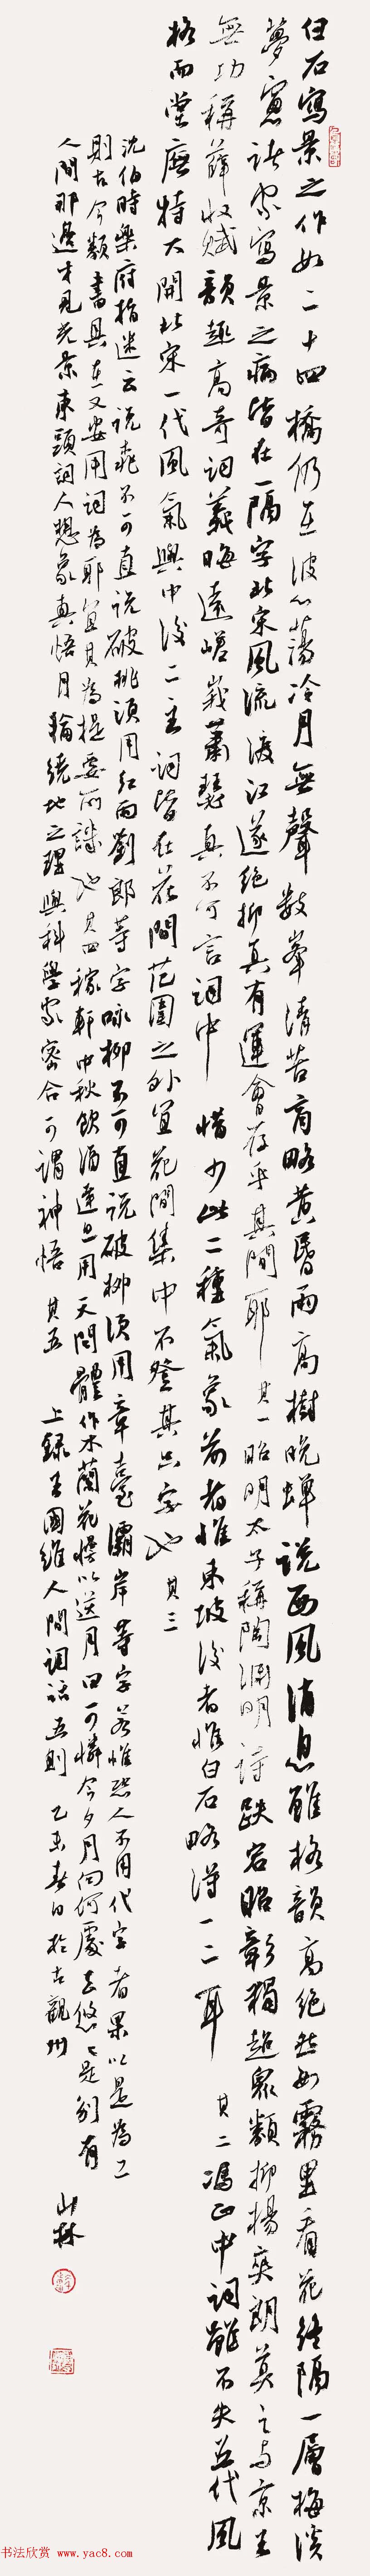 白石寫景之作如二十四橋仍在波心蕩冷月無聲數峯清苦商略黃昏雨高樹晚蟬說西風消息雖格韻高絕然如霧里看花終隔一層梅溪
夢窗諸家寫景之病皆在一隔字北宋風流渡江遂絕抑真有運會存乎其間耶 其一 昭明太子稱陶淵明詩跌宕昭彰獨超衆類抑揚爽朗莫之與京王
無功稱薛收賦韻趣高奇詞義晦遠嵯峩蕭瑟真不可言詞中惜少此二種氣象前者惟東坡後者惟白石略得一二耳 其二 馮正中詞雖不失五代風
格而堂廡特大開北宋一代風氣與中後二主詞皆在花間范圍之外宜花間集中不登其只字也 其三
沈伯時樂府指迷云說桃不可直說破桃須用紅雨劉郎等字咏柳不可直說破柳須用章臺灞岸等字若惟恐人不用代字者果以是為工
則古今類書具在又安用詞為耶宜其為提要所譏也 其四 稼軒中秋飲酒達旦用天問體作木蘭花慢以送月曰可憐今夕月向何處去悠悠是別有
人間那邊才見光景東頭詞人想象直悟月輪繞地之理與科學家密合可謂神悟 其五 上錄王國維人間詞話五則 乙未春日於古觀州
山林
书法欣赏 www.yac8.com